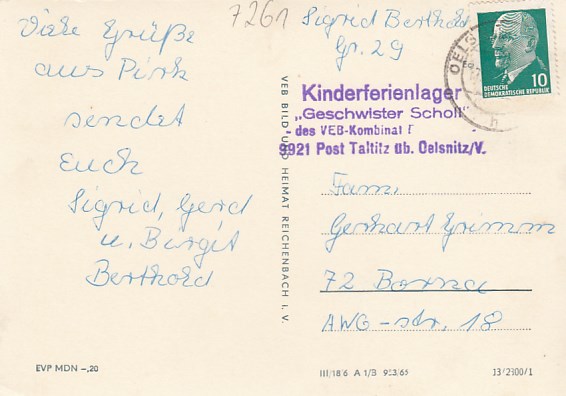 Viele Grüße
aus Pirk
sendet
Euch
Sigrid, Gerd
u. Birgit
Berthold
EVP MDN -,20
VEB BILD UND HEIMAT REICHENBACH I. V.
7261
Sigrid Berthold
Gr. 29
Kinderferienlager
„Geschwister Scholl"
des VEB-Kombinat
9921 Post Taltitz üb. Oelsnitz/V.
OELS
10
DEUTSCHE
DEMOKRATISCHE REPUBLIK
Fam.
Gerhart Grimm
72 Borna
AWG-str. 18
III/18/6 A 1/B 963/65
13/2900/1